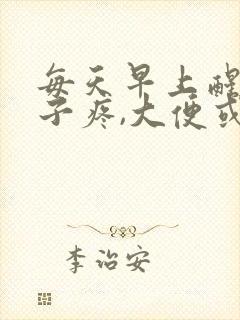 每天早上醒
子疼,大便或
李治安